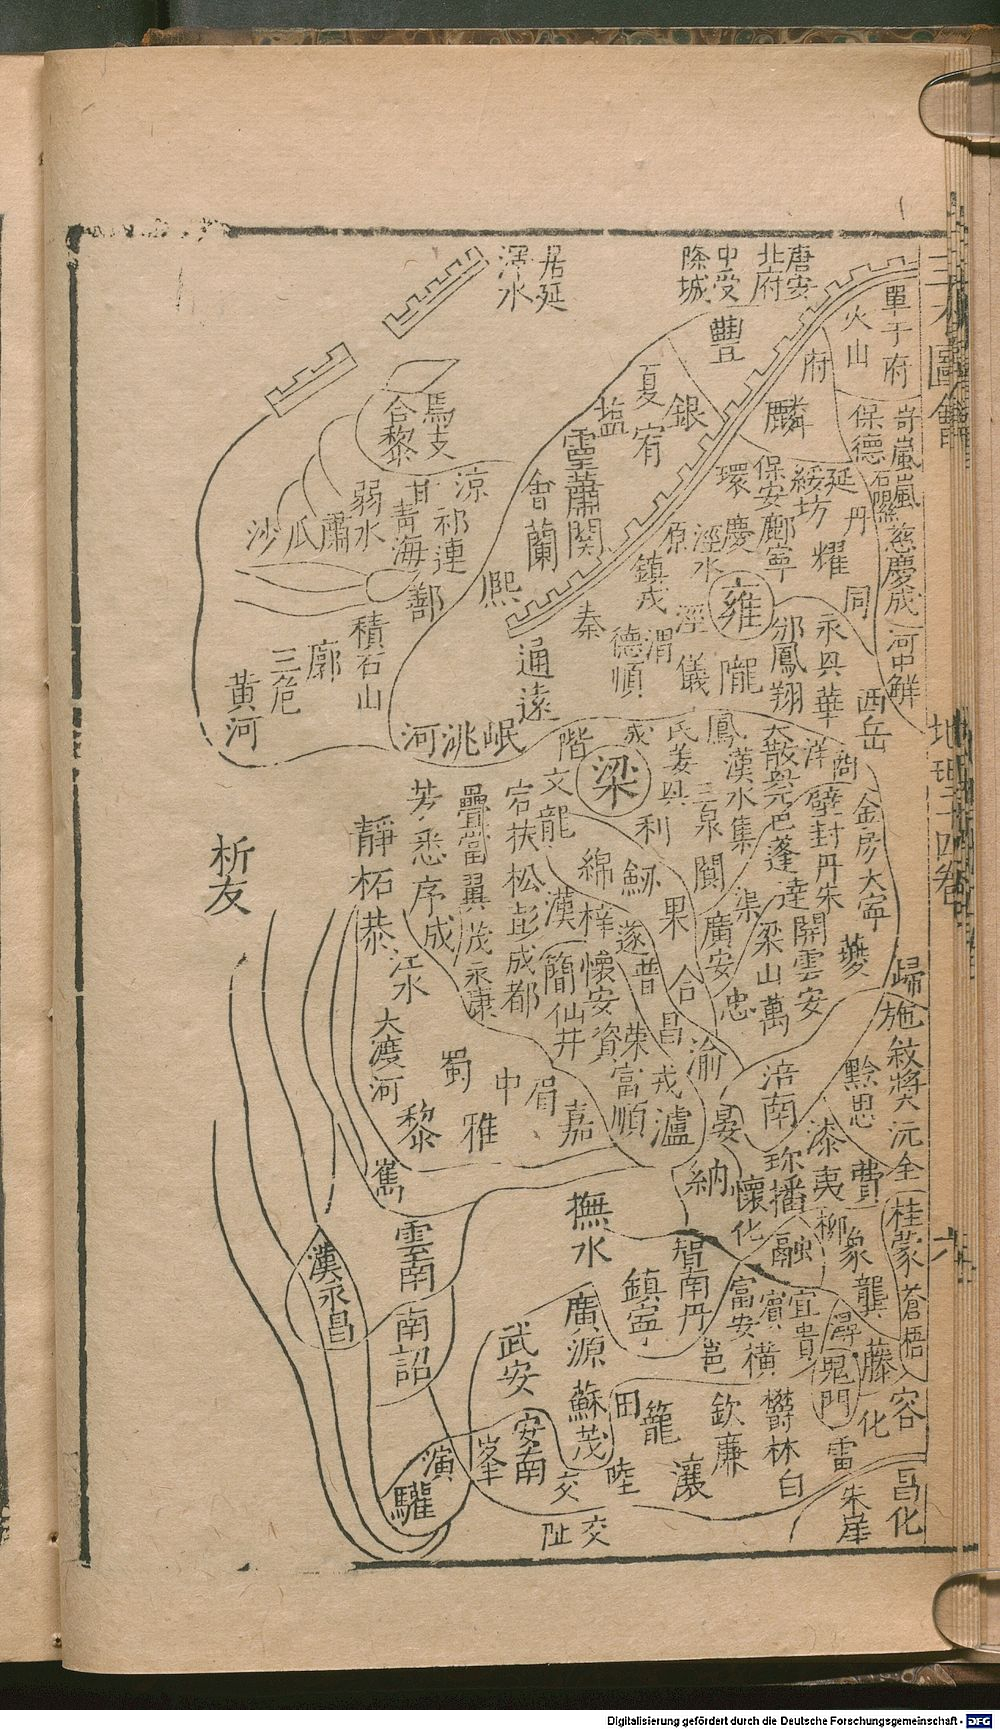 居延
渾水
唐安
北府
中受
降城
單于府
火山
府
豐
夏
銀
麟
塩
宥
保德
岢嵐
嵐
石
慈
慶成
河中
觧
焉支
合黎
弱水
甘
涼
祁連
青海
鄯
沙
瓜
肅
會
蘭
靈
蕭関
熙
秦
通遠
環
慶
保安
鄜
寧
綏
延
坊
丹
耀
同
原
涇水
鎮戎
德順
渭
涇
儀
隴
雍
邠
鳳翔
永興
華
西岳
積石山
廓
三危
黃河
河
洮
岷
階
成
鳳
氐羌
興
三泉
漢水
集
大散
興元
巴
蓬
達
洋
商
壁
封
丹
朱
開
雲安
金
房
大寧
夔
梁
文
龍
利
閬
渠
廣安
梁山
萬
忠
綿
梓
遂
普
果
合
昌
渝
漢
簡
仙井
懷安
資
榮
富順
戎
瀘
宕
扶
松
彭
成都
疊
當
翼
茂
永康
芳
悉
序
成
靜
柘
恭
江水
大渡河
蜀
中
眉
嘉
黎
雅
雟
析友
歸
施
敘
奬
沅
全
黔
思
涪
南
溱
夷
費
珍
播
晏
納
懷化
柳
融
象
龔
桂
蒙
蒼梧
藤
容
化
撫水
智
南丹
鎮寧
富安
賓
橫
宜
貴
潯
鬼門
邕
廣源
蘇茂
武安
安南
峯
交
陸
田
籠
瀼
欽
廉
欝林
白
雷
朱崖
昌化
交趾
雲南
漢永昌
南詔
演
驩
三才圖會
地理十四卷
六
Digitalisierung gefördert durch die Deutsche Forschungsgemeinschaft - DFG